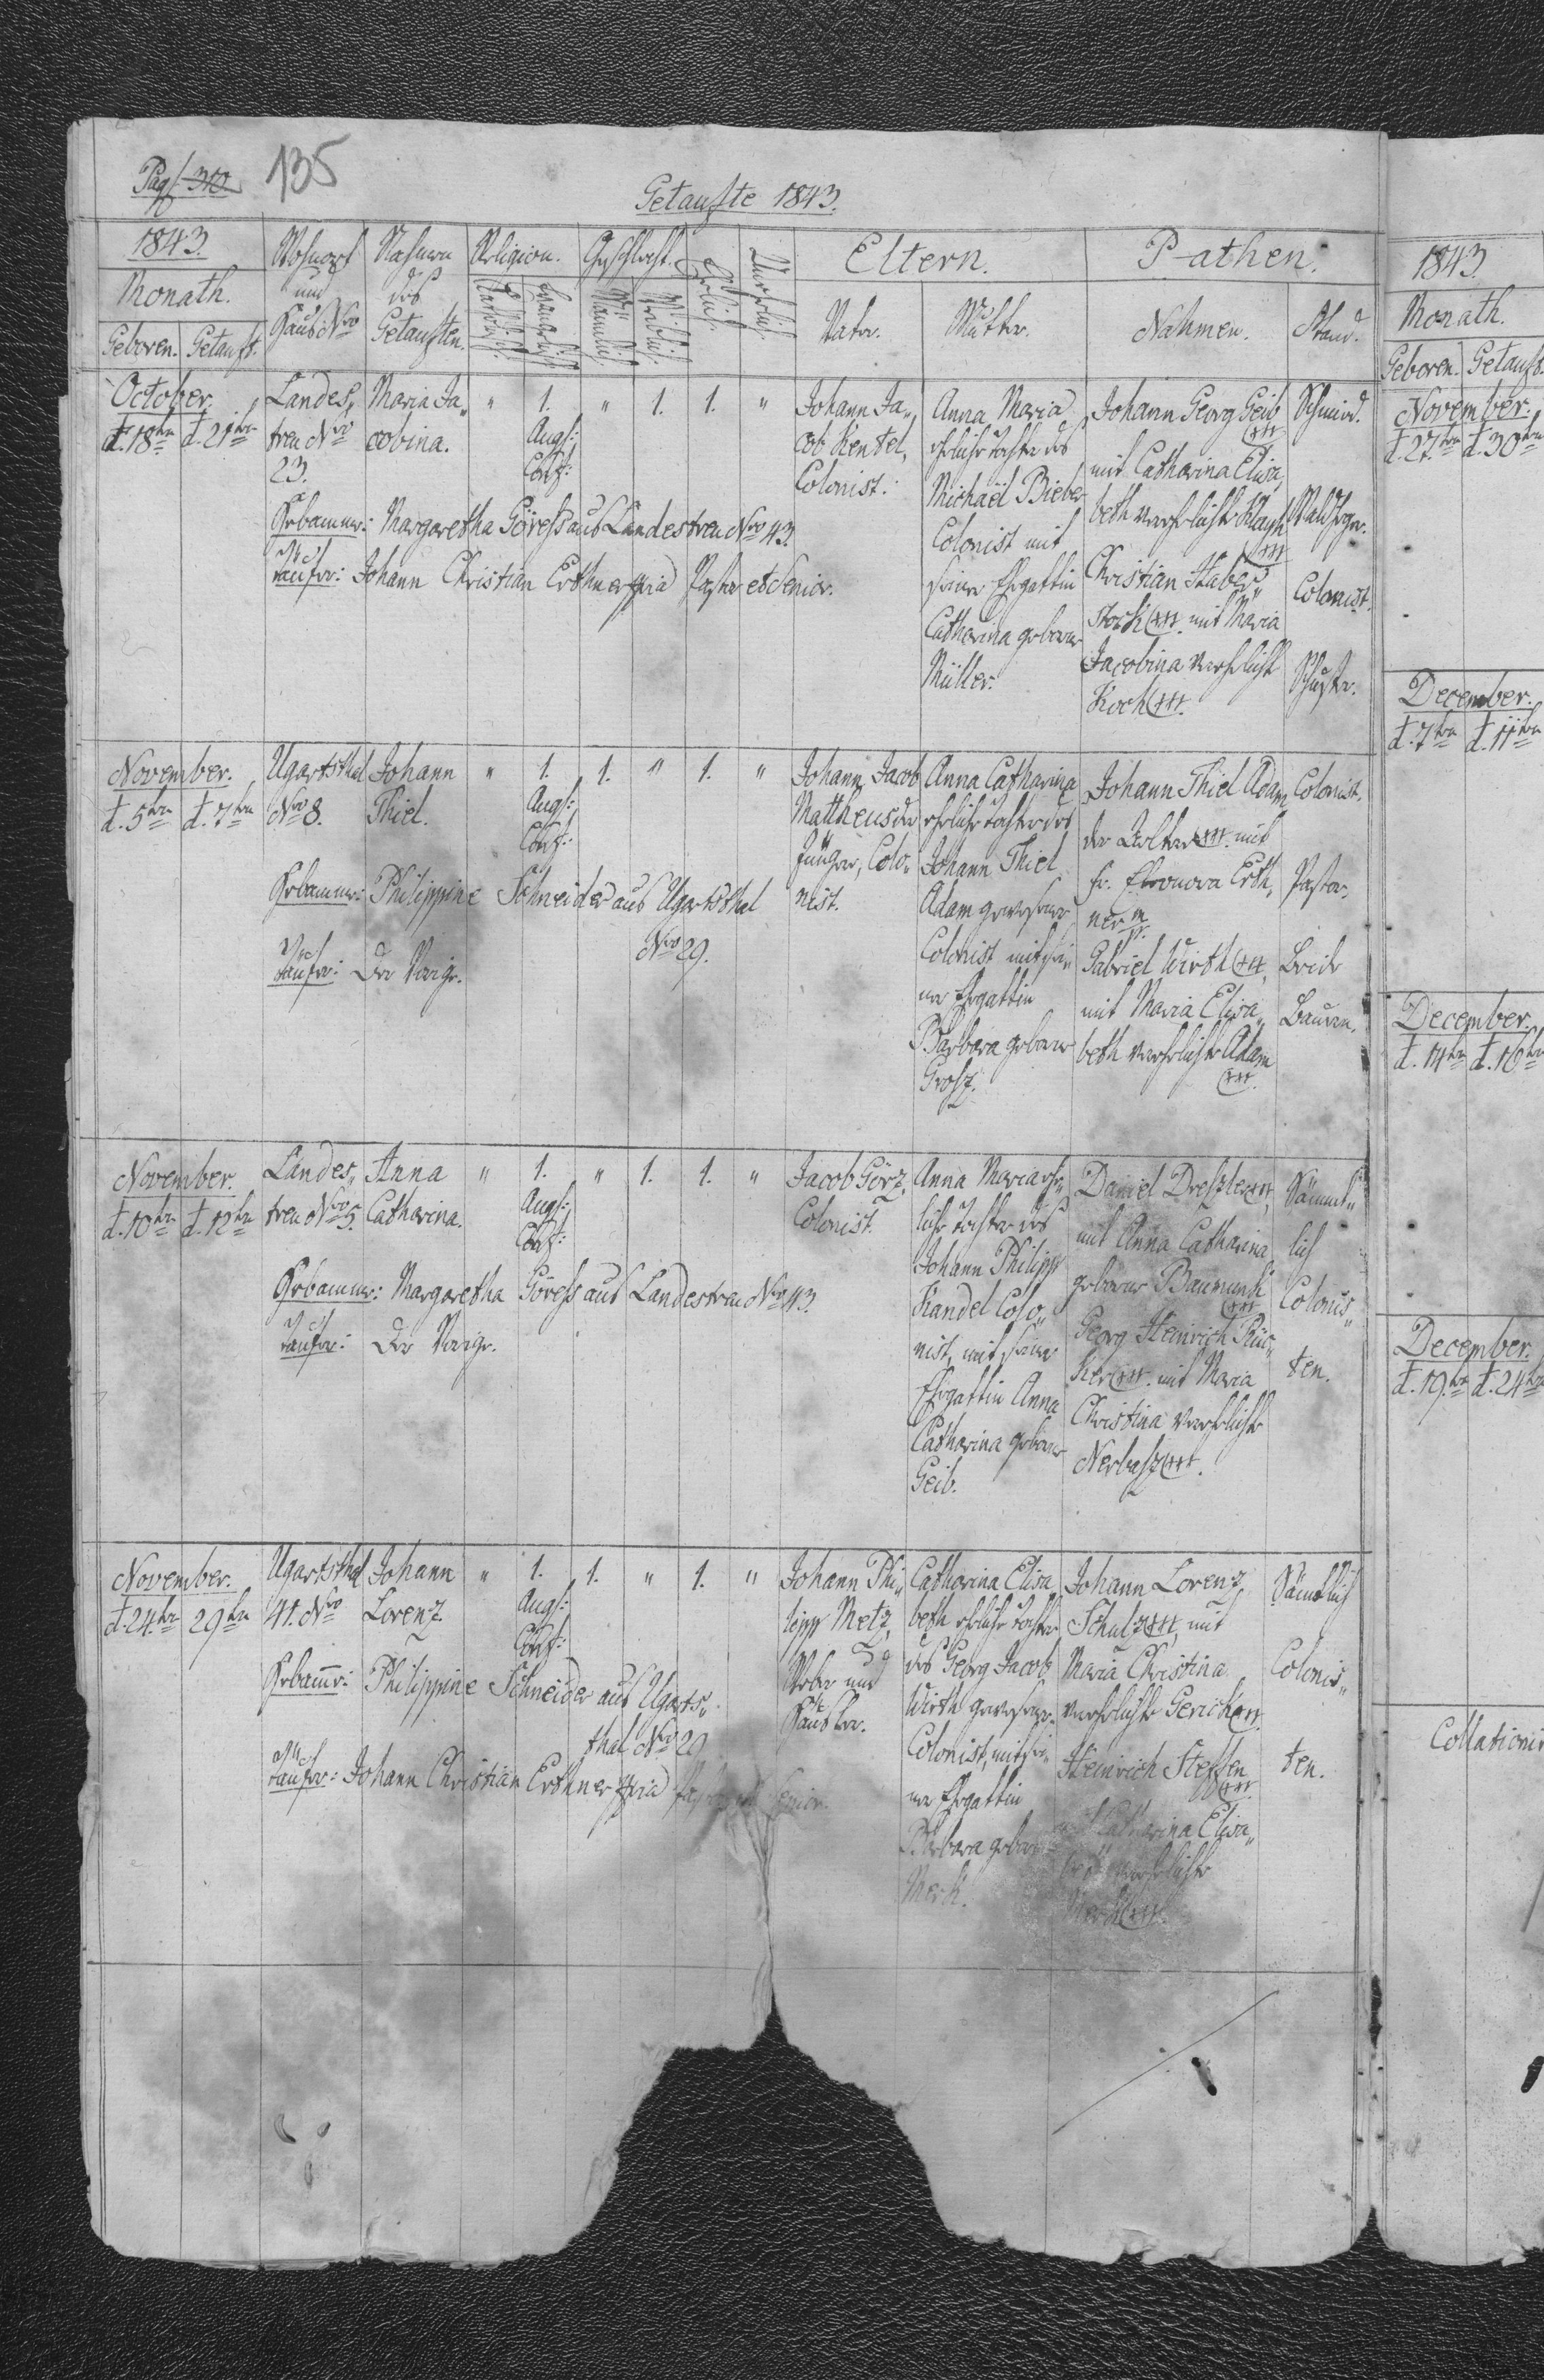 Pag. 310
135
Getaufte 1843.
1843.
Monath.
Geboren. Getauft.
Wohnort
und
Haus Nro
Nahmen
des
Getauften.
Religion.
Katholisch.
Evangelisch
Geschlecht.
Männlich.
Weiblich.
Ehelich.
Unehelich.
Eltern.
Vater.
Mutter.
Pathen.
Nahmen.
Stand.
October.
d. 18ten d. 21ten
Landes„
treu Nro
23.
Maria Ja„
cobina.
" 1. " 1. 1. "
Augs:
Conf:
Johann Ja„
cob Kentel,
Colonist.
Anna Maria
eheliche Tochter des
Michaël Bieber
Colonist mit
seiner Ehegattin
Catharina geborne
Müller.
Johann Georg Geib
(+++
mit Catharina Elisa„
beth verehelichte
(+++
Christian Haber„
stock (+++. mit Maria
Jacobina verehelicht
Koch (+++.
Schmied.
Colonist.
Schuster.
Hebamme: Margaretha Göress aus Landestreu Nro 43.
Täufer: Johann Christian Erthner mpria Pastor et Senior.
November.
d. 5ten d. 7ten
Ugartsthal
Nro 8.
Johann
Thiel.
" 1. 1. " 1. "
Augs:
Conf:
Johann Jacob
Mattheus der
Jünger, Colo„
nist.
Anna Catharina
eheliche Tochter des
Johann Thiel
Adam gewesener
Colonist mit sei„
ner Ehegattin
Barbara geborne
Grosz.
Johann Thiel Adam
der Aeltere +++. mit
fr. Eleonora Erth„
ner mp.
Gabriel Wirth (+++,
mit Maria Elisa„
beth verehelichte Adam
(+++.
Colonist.
Pastor.
Beide
Bauern.
Hebamme: Philippine Schneider aus Ugartsthal
Nro 29.
Täufer: Der Vorige.
November.
d. 10ten d. 12ten
Landes„
treu Nro 5.
Anna
Catharina.
" 1. " 1. 1. "
Augs:
Conf:
Jacob Görz,
Colonist.
Anna Maria ehe„
liche Tochter des
Johann Philipp
Kandel Colo„
nist, mit seiner
Ehegattin Anna
Catharina geborne
Geib.
Daniel Dreszler +++,
mit Anna Catharina
geborne Baumunk
(+++
Georg Heinrich Rüc„
ker (+++. mit Maria
Christina verehelichte
Nerbasz (+++.
Sämmt„
lich
Colonis„
ten.
Hebamme: Margaretha Göress aus Landestreu Nro 43.
Täufer: Der Vorige.
November.
d. 24ten 29ten
Ugartsthal
41. Nro
Johann
Lorenz.
" 1. 1. " 1. "
Augs:
Conf:
Johann Phi„
lipp Metz,
Weber und
Häusler.
Catharina Elisa„
beth eheliche Tochter
des Georg Jacob
Wirth gewesener
Colonist, mit sei„
ner Ehegattin
Barbara geborne
Merk.
Johann Lorenz
Schulz +++, mit
Maria Christina
verehelichte Gerich +++.
Heinrich Steffen
(+++
mit Catharina Elisa„
beth verehelichte
Merk (+++.
Sämtlich
Colonis„
ten.
Hebamme: Philippine Schneider aus Ugarts„
thal Nro 29
Täufer: Johann Christian Erthner mpria Pastor et Senior.
1843.
Monath.
Geboren. Getauft.
November.
d. 27ten d. 30ten
December.
d. 7ten d. 11ten
December.
d. 14ten d. 16ten
December.
d. 19ten d. 24ten